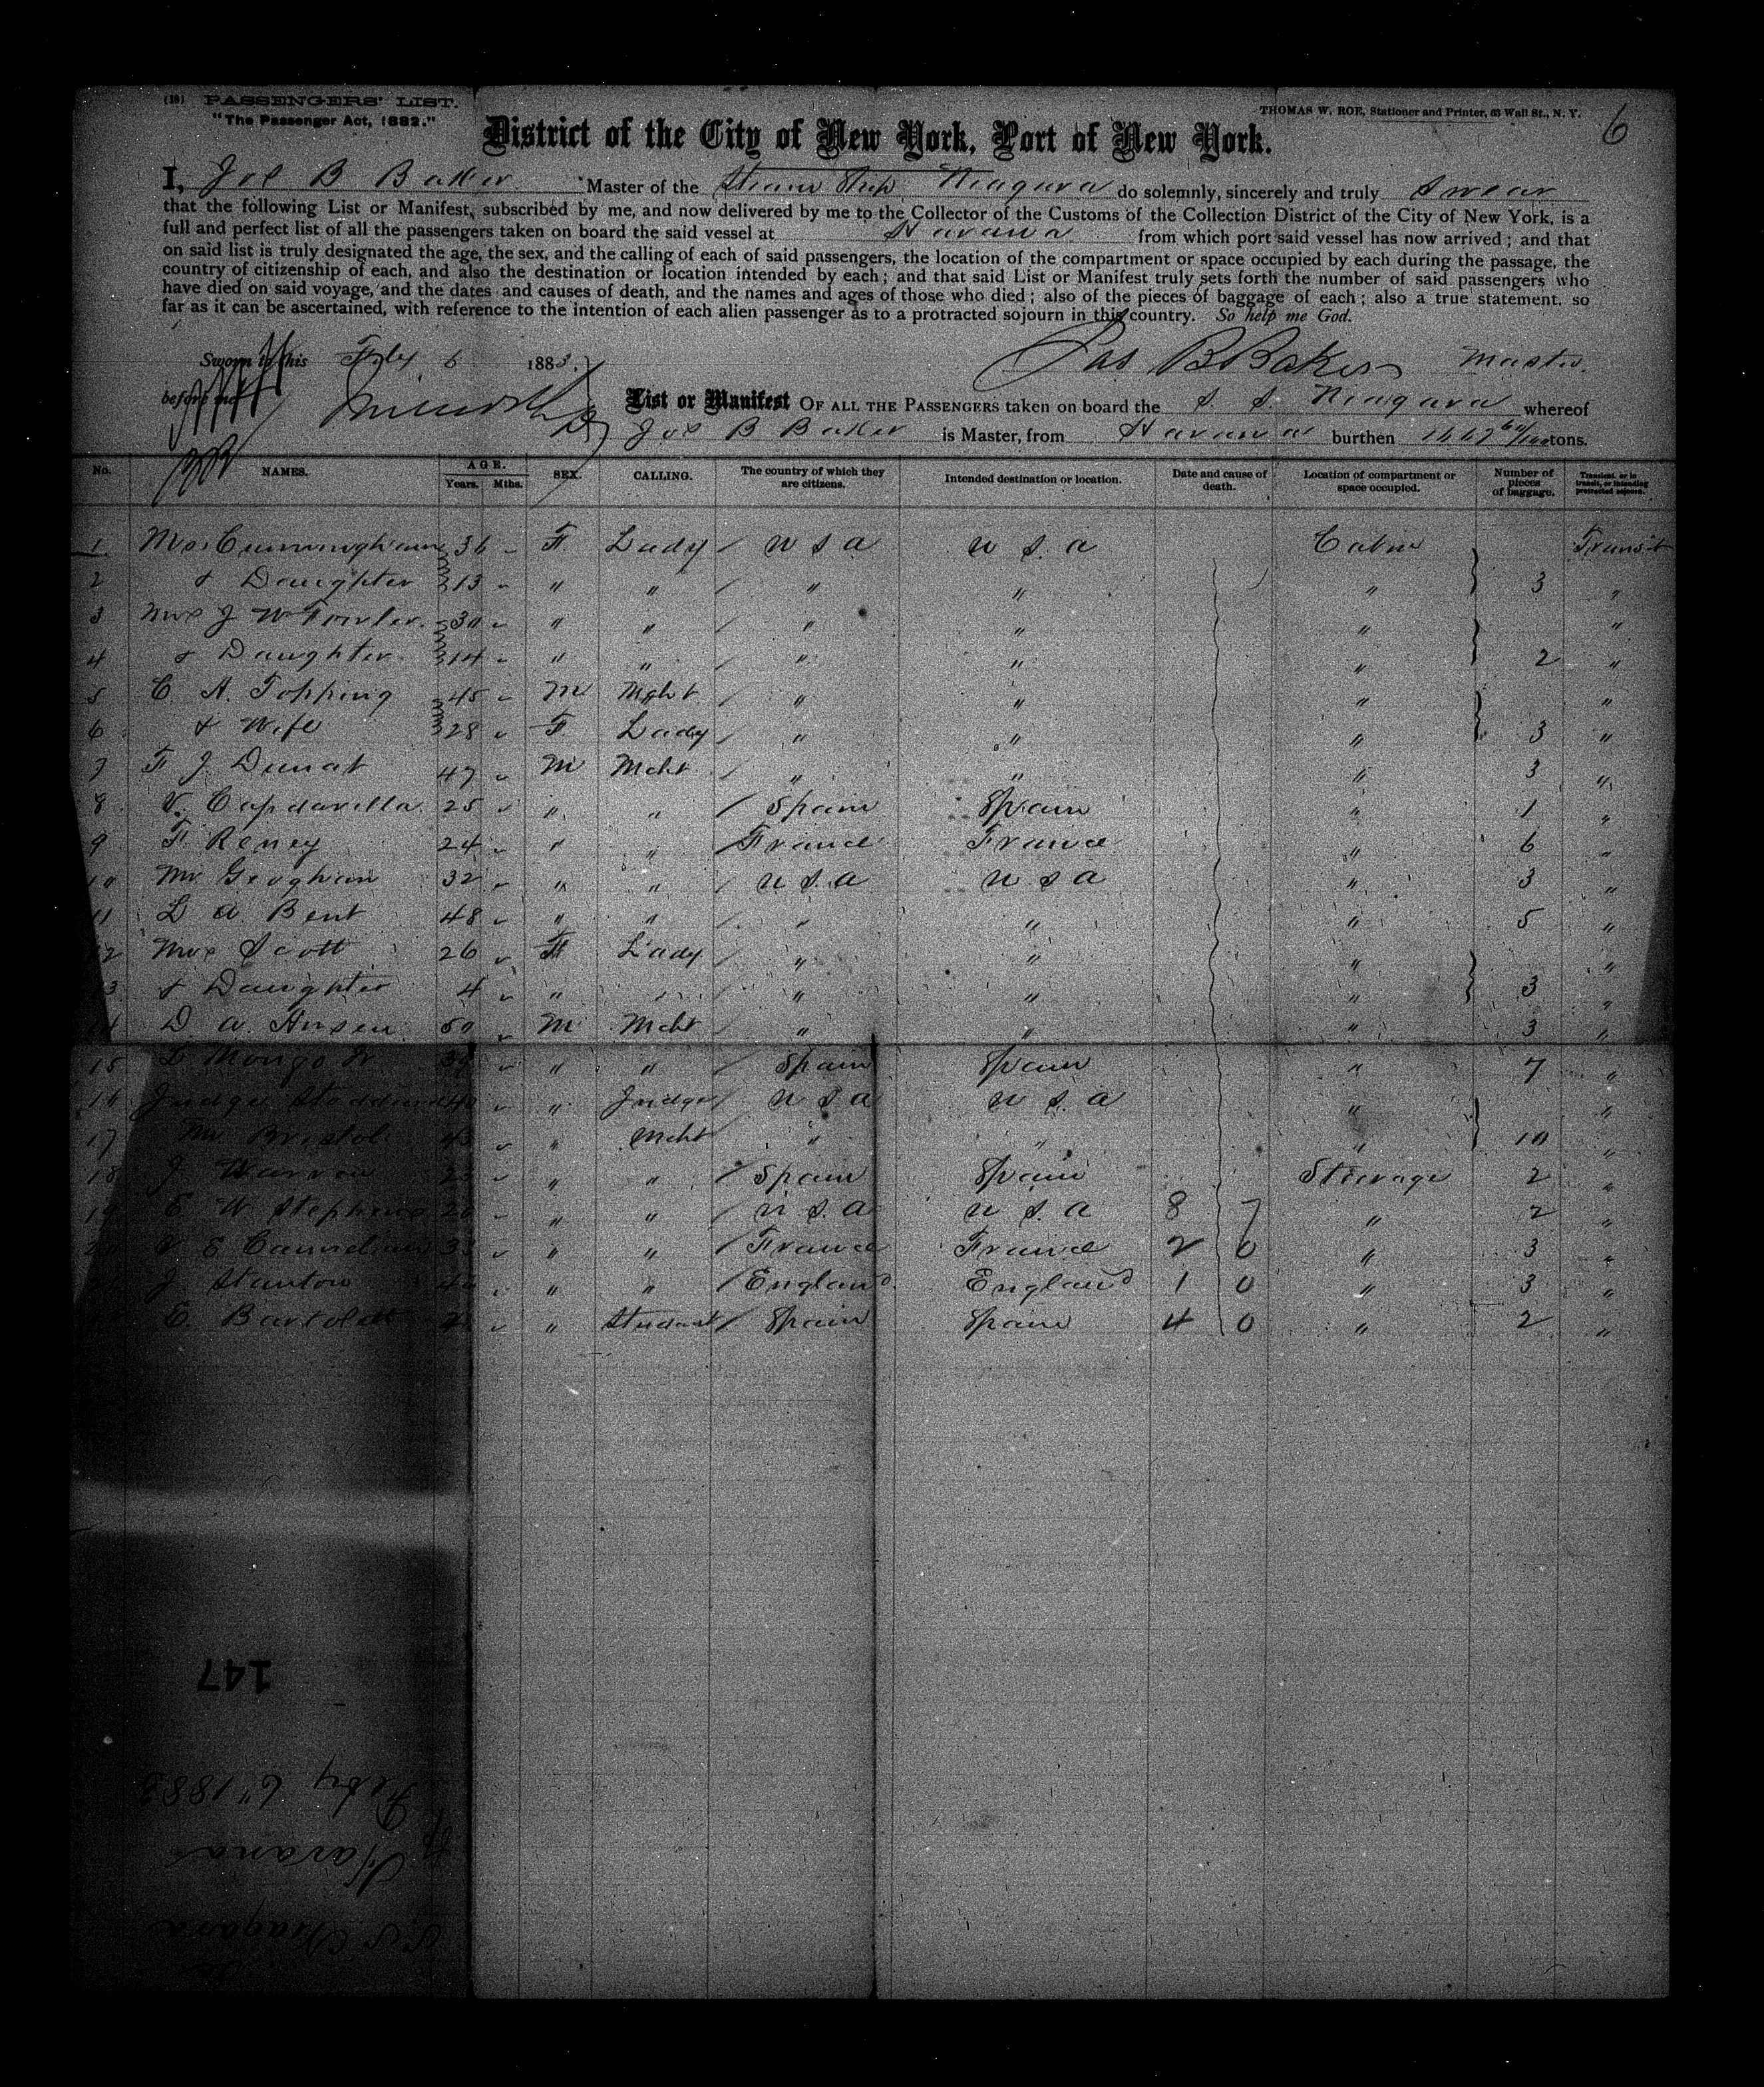 (18) PASSENGERS' LIST.
"The Passenger Act, 1882."
THOMAS W. ROE, Stationer and Printer, 63 Wall St., N. Y.
6
District of the City of New York, Port of New York.
I, Jos B Baker Master of the Steam Ship Niagara do solemnly, sincerely and truly Swear
that the following List or Manifest, subscribed by me, and now delivered by me to the Collector of the Customs of the Collection District of the City of New York, is a
full and perfect list of all the passengers taken on board the said vessel at Havana from which port said vessel has now arrived; and that
on said list is truly designated the age, the sex, and the calling of each of said passengers, the location of the compartment or space occupied by each during the passage, the
country of citizenship of each, and also the destination or location intended by each; and that said List or Manifest truly sets forth the number of said passengers who
have died on said voyage, and the dates and causes of death, and the names and ages of those who died; also of the pieces of baggage of each; also a true statement, so
far as it can be ascertained, with reference to the intention of each alien passenger as to a protracted sojourn in this country. So help me God.
Sworn to this Feby 6 1883.
Jas B Baker Master.
before me
List or Manifest OF ALL THE PASSENGERS taken on board the S. S. Niagara whereof
Jos B Baker is Master, from Havana burthen tons.
No. NAMES. AGE. Years. Mths. SEX. CALLING. The country of which they are citizens. Intended destination or location. Date and cause of death. Location of compartment or space occupied. Number of pieces of baggage. Transient, or in transit, or intending protracted sojourn.
1 Mrs Cunningham 36 - F Lady / U S A U S. A Cabin Transit
2 & Daughter 13 - " " / " " " 3 "
3 Mrs J W Fowler. 30 - " " / " " " "
4 & Daughter 14 - " " / " " " 2 "
5 C. H. Topping 45 - M Mcht / " " " "
6 & Wife 28 - F Lady / " " " 3 "
7 F J. Dunat 47 - M Mcht / " " " 3 "
8 V. Capdavilla 25 - " " / Spain Spain " 1 "
9 F. Reney 24 - " " / France France " 6 "
10 Mr Geoghan 32 - " " / U. S. A U S A " 3 "
11 L A Bent 48 - " " / " " " 5 "
12 Mrs Scott 26 - F Lady / " " " "
13 & Daughter 4 - " " / " " " 3 "
14 D A. Ansen 50 - M Mcht / " " " 3 "
15 - " " / Spain Spain " 7 "
16 Judge Stoddard 40 - " Judge / U S A U S. A " "
17 Mr Bristol 43 - " Mcht " " " 10 "
18 J. - " " / Spain Spain Steerage 2 "
19 E W Stephens - " " / U S. A U S. A 8 7 " 2 "
20 - " " / France France 2 0 " 3 "
J Stanton - " " / England England 1 0 " 3 "
E. - " Student / Spain Spain 4 0 " 2 "
147
Feby 6" 1883
Havana
S.S. Niagara